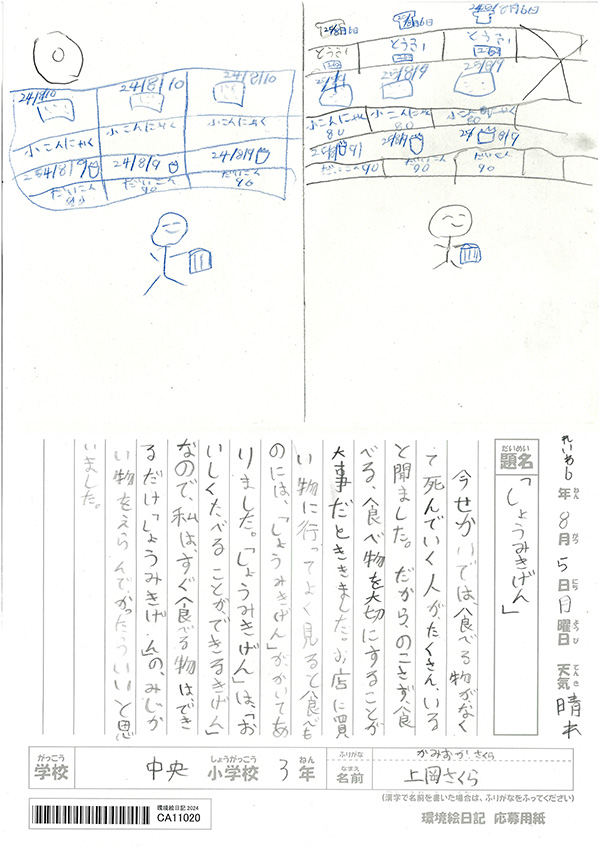 24/8/10
24/8/10
24/8/10
小こんにゃく
小こんにゃく
小こんにゃく
24/8/9
24/8/9
だいこん
90
だいこん
90
だいこん
90
とうふ
とうふ
とうふ
25/8/9
25/8/9
小こんにゃく
80
小こんにゃく
80
小こんにゃく
80
24/8/9
だいこん90
だいこん
90
だいこん
90
れいわ6年8月5日日曜日 天気 晴れ
ねん がつ にち ようび てんき
だいめい
題名
「しょうみきげん」
今せかいでは、食べる物がなく
て死んでいく人が、たくさん、いる
と聞ました。だから、のこさず、食
べる、食べ物を大切にすることが
大事だとききました。お店に買
い物に行ってよく見ると食べも
のには、「しょうみきげん」が、かいてあ
りました。「しょうみきげん」は、「お
いしくたべることができるきげん」
なので、私は、すぐ食べる物は、でき
るだけ「しょうみきげん」の、みじか
い物をえらんでかったらいいと思
いました。
がっこう
学校
中央
しょうがっこう
小学校
3
ねん
年
ふりがな
かみおかさくら
なまえ
名前
上岡さくら
(漢字で名前を書いた場合は、ふりがなをふってください)
環境絵日記2024
CA11020
環境絵日記 応募用紙